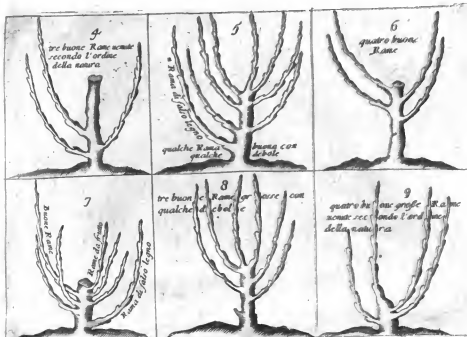 4
tre buone Rame uenute
secondo l'ordine
della natura
5
Rama di falso legno
qualche Rama buona con
qualche debole
6
quatro buone
Rame
7
Buone Rame
Rame da frutto
Rama di falso legno
8
tre buone Rame grosse con
qualche debole
9
quatro buone grosse Rame
uenute secondo l'ordine
della natura